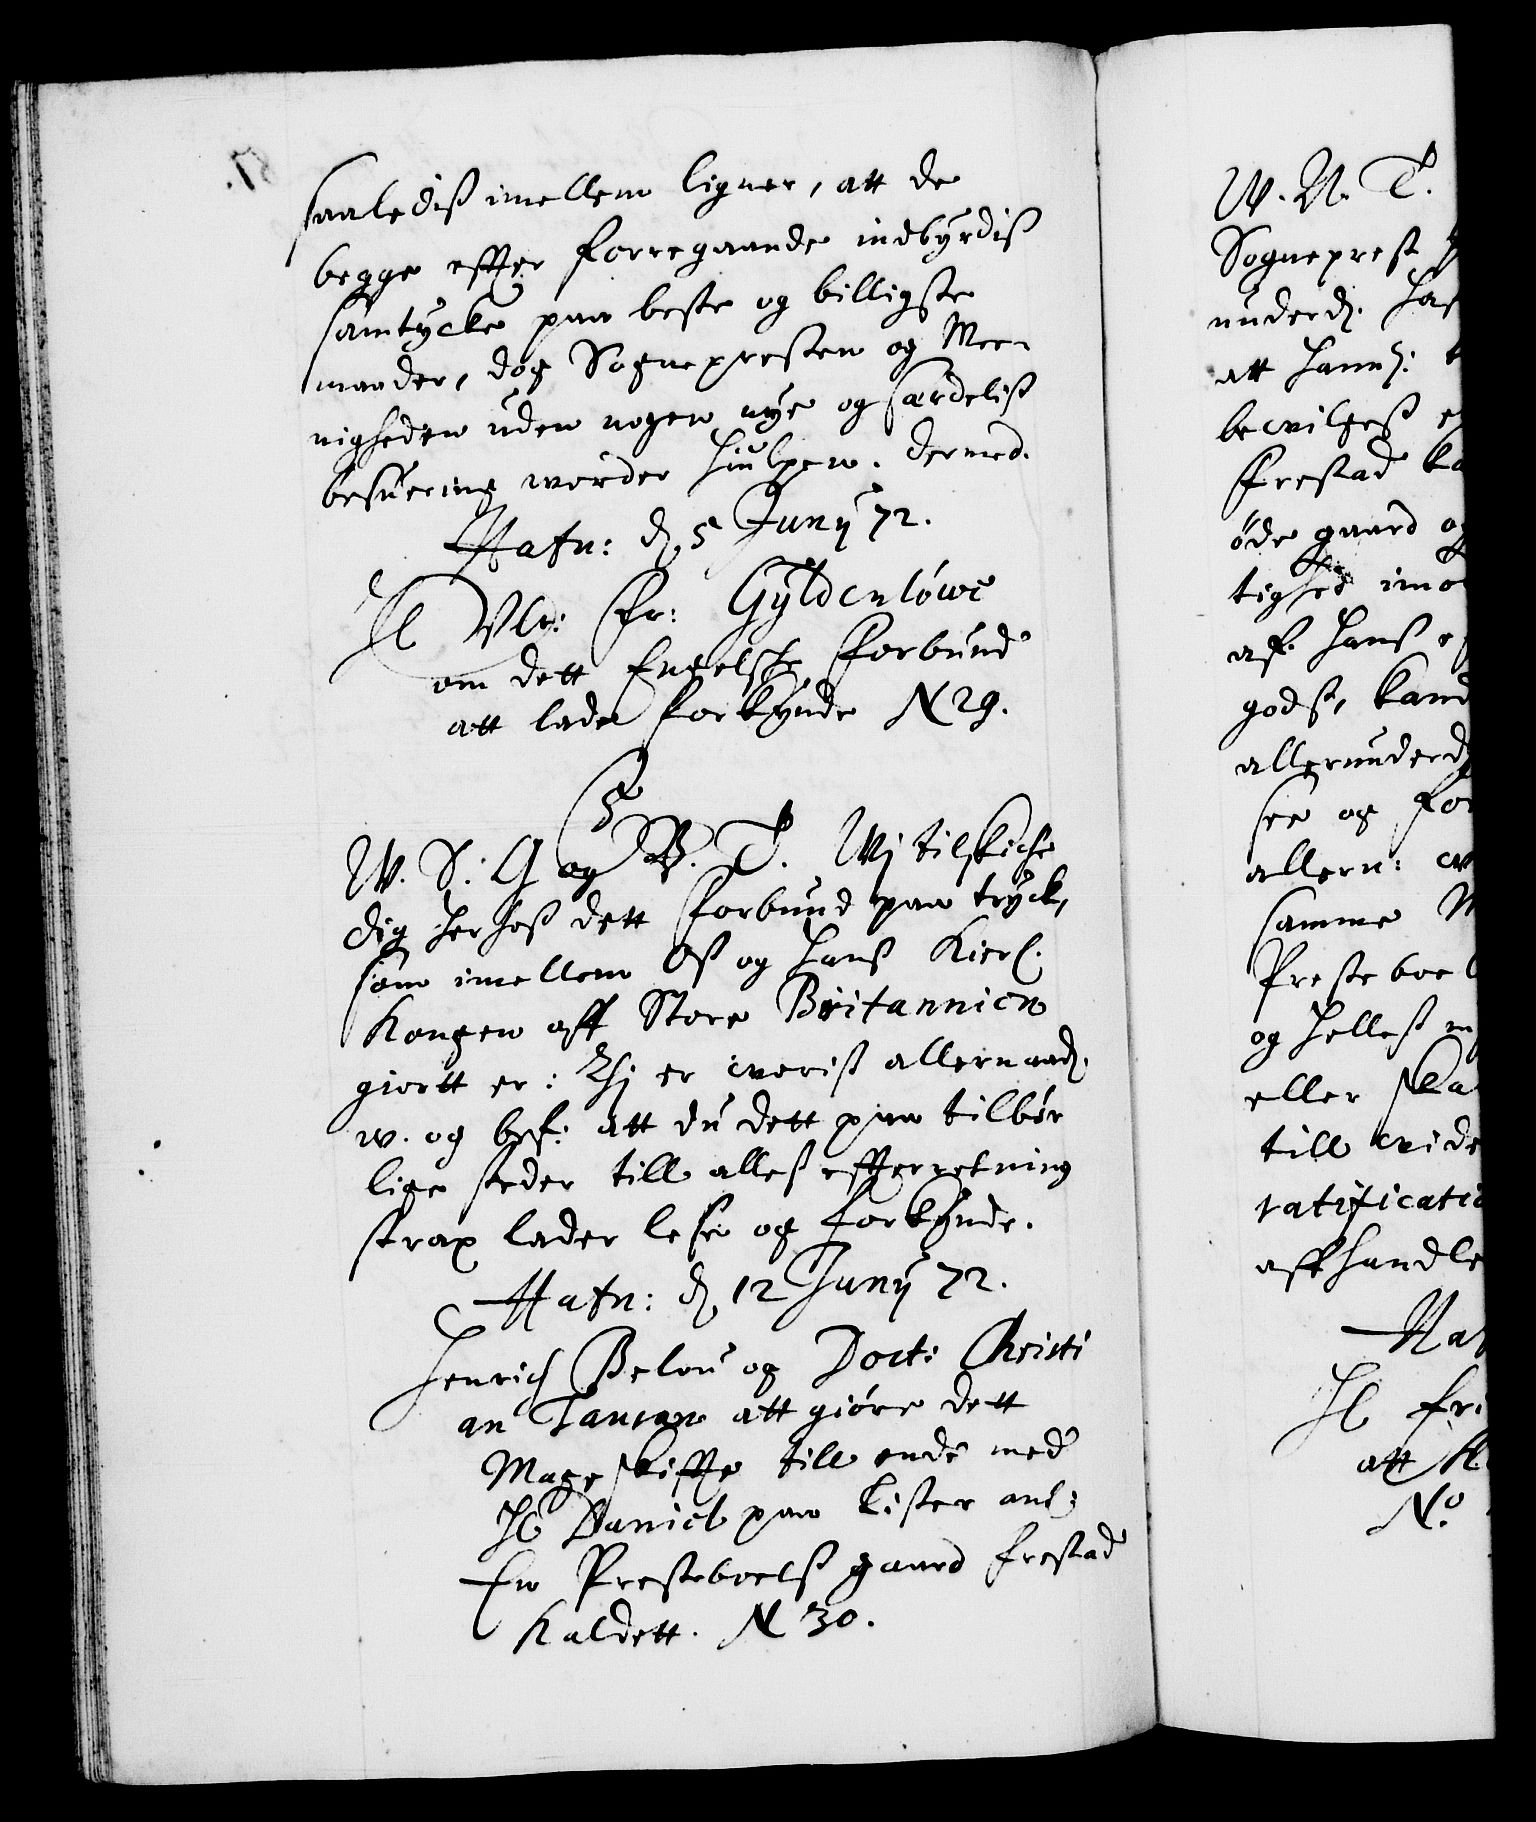 saalediß imellem ligner, att de
begge effter forregaaende indbyrdiß
samtycke paa beste og billigste
maader, dog Sognepresten og Mee-
nigheden uden nogen nye og særdeliß
besuering worder hiulpen. dermed.
Hafn: d. 5 Junij 72.
H Vlr: Fr: Gyldenlöwe
om dett Engelsche Forbund
att lade forkynde N 29.
C5
W. S: G og B. T. Wj tilskicke
dig herhoß dett Forbund paa tryck,
som imellem Oß og Hans Kierl.
Kongen aff Store Britannien
giortt er: Thj er woriß allernaad.
w. og bef: att du dett paa tilbør
lige steder till alleß effterretning
strax lader lese og forkynde.
Hafn: d. 12 Junij 72.
Henrich Belou og Doct: Christi
an Tausan att giöre dett
Mageskiffte till ende med
Hr Daniel paa Lister anl:
En Presteboelß gaard Frestad
Kaldett. N 30.
W. U. T.
Sogneprest
underd. haf
att hanß:
bewilgeß
Frestad ka
öde gaard
tighed imo
af hanß
godß, kand
allerunderd
see og for
allern: w
samme M
Presteboel
og helleß
eller ska
till vide
ratificatio
affhandle
Haf
H Fri
att
No